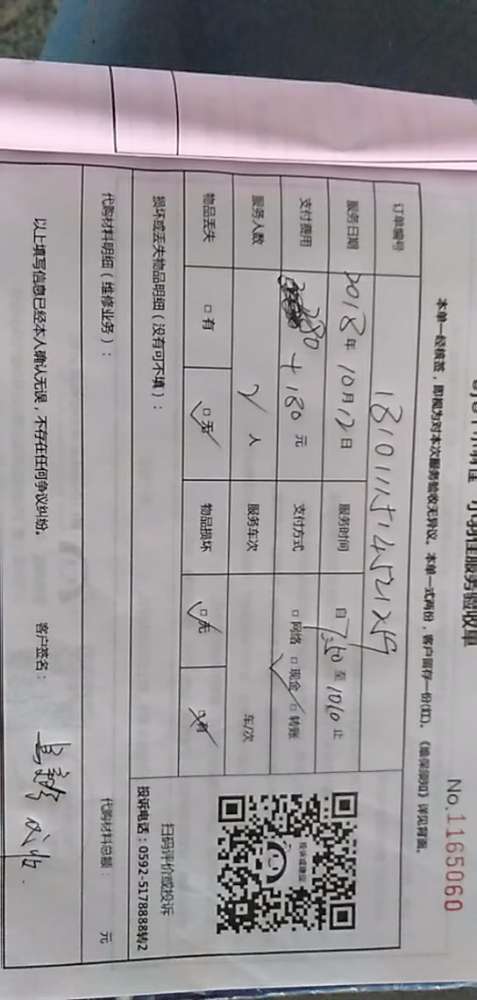 小羽佳服务验收单
No.1165060
本单一经核签，即视为对本次服务验收无异议。本单一式两份，客户留存一份(红)。《维保须知》详见背面。
订单编号
服务日期 2018年10月12日 服务时间 自7:50至1010止
支付费用 280+180元 支付方式 □网络 □现金 □转账
服务人数 2人 服务车次 车/次
物品丢失 □有 □无 物品损坏 □无 □有
损坏或丢失物品明细（没有可不填）：
扫码评价或投诉
投诉电话：0592-5178888转2
代购材料明细（维修业务）：
代购材料总额： 元
以上填写信息已经本人确认无误，不存在任何争议纠纷。
客户签名：